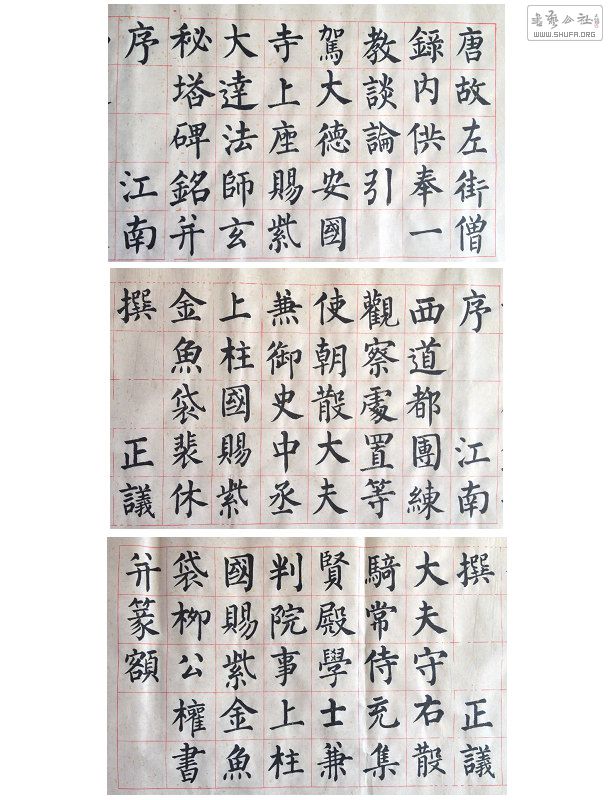 唐故左街僧
錄内供奉一
教談論引
駕大德安國
寺上座賜紫
大達法師玄
秘塔碑銘并
序 江南
序 江南
西道都團練
觀察處置等
使朝散大夫
兼御史中丞
上柱國賜紫
金魚袋裴休
撰 正議
撰 正議
大夫守右散
騎常侍充集
賢殿學士兼
判院事上柱
國賜紫金魚
袋柳公權書
并篆額
WWW.SHUFA.ORG